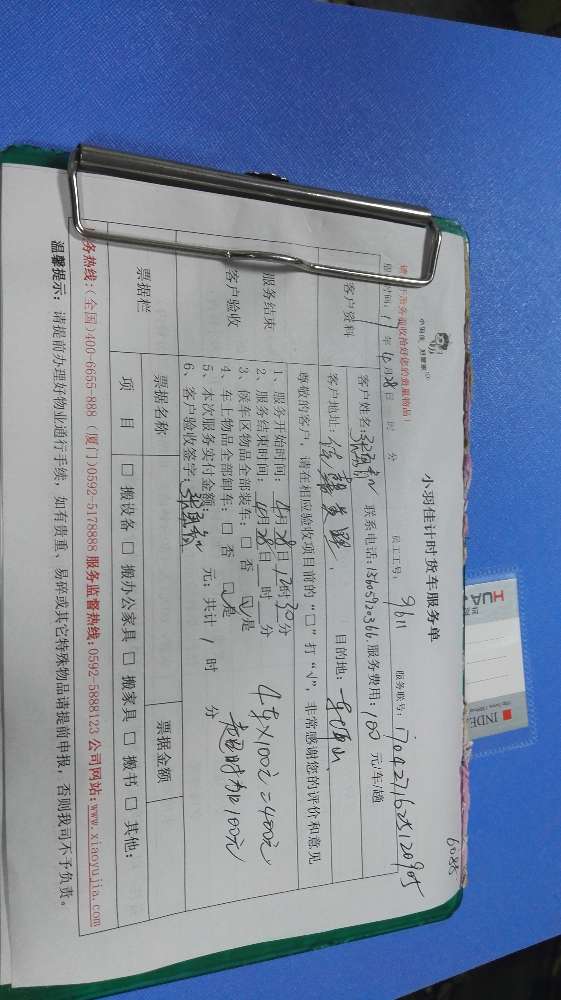 6085
小羽佳 好管家
小羽佳计时货车服务单
服务验收拾好您的贵重物品!
时间:17年4月28日 时 分 员工工号: 9611 服务账号: 170427162512090
客户资料
客户姓名: 联系电话: 13605920366 服务费用: 100 元/车/趟
客户地址: 目的地:
尊敬的客户,请在相应验收项目前的“□”打“√”,非常感谢您的评价和意见
服务结束
客户验收
1、服务开始时间: 4月28日12时30分
2、服务结束时间: 4月28日 时 分
3、候车区物品全部装车: □ 否 ☑ 是
4、车上物品全部卸车: □ 否 ☑ 是
5、本次服务实付金额: 元; 共计 1 时 分
6、客户验收签字:
4车×100元=400元
超时加100元
票据栏
票据名称 票据金额
项 目 □ 搬设备 □ 搬办公家具 □ 搬家具 □ 搬书 □ 其他:
务热线:(全国)400-6655-888 (厦门)0592-5178888 服务监督热线:0592-5888123 公司网站:www.xiaoyujia.com
温馨提示: 请提前办理好物业通行手续, 如有贵重、易碎或其它特殊物品请提前申报, 否则我司不予负责。
INDE